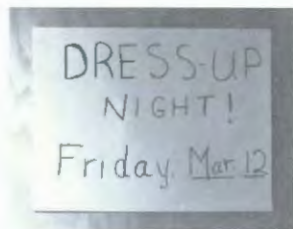 DRESS-UP
NIGHT!
Friday, Mar. 12